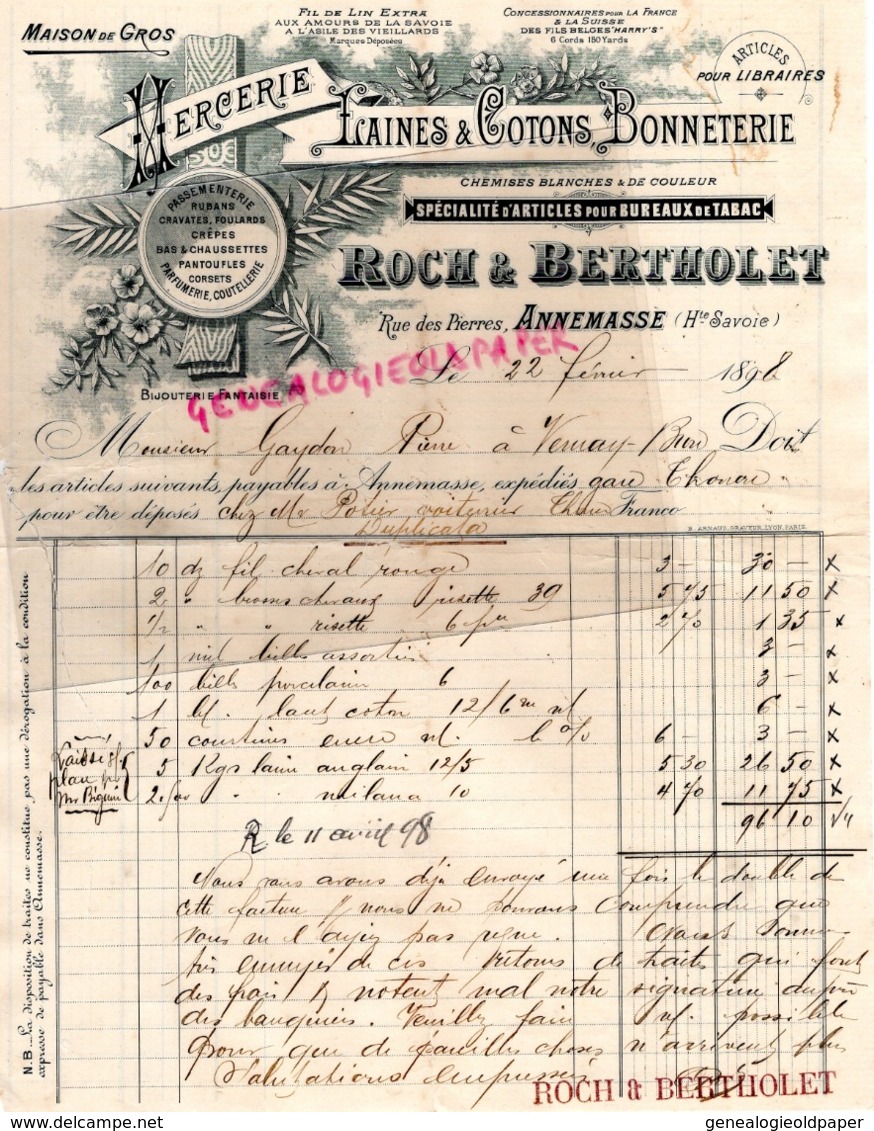 MAISON DE GROS
FIL DE LIN EXTRA
AUX AMOURS DE LA SAVOIE
A L'ASILE DES VIEILLARDS
Marques Déposées
CONCESSIONNAIRES POUR LA FRANCE
& LA SUISSE
DES FILS BELGES "HARRY'S"
6 Cords 150 Yards
ARTICLES
POUR LIBRAIRES
MERCERIE
LAINES & COTONS, BONNETERIE
CHEMISES BLANCHES & DE COULEUR
SPÉCIALITÉ D'ARTICLES POUR BUREAUX DE TABAC
PASSEMENTERIE
RUBANS
CRAVATES, FOULARDS
CRÊPES
BAS & CHAUSSETTES
PANTOUFLES
CORSETS
PARFUMERIE, COUTELLERIE
BIJOUTERIE FANTAISIE
ROCH & BERTHOLET
Rue des Pierres, ANNEMASSE (Hte Savoie)
GENEALOGIEOLDPAPER
Le 22 février 1898
Monsieur Gaydon Pierre à Vernay-Bron Doit
les articles suivants, payables à Annemasse, expédiés gare Thonon
pour être déposés chez Mr Potier voiturier Thon Franco
Duplicata
B. ARNAUD, GRAVEUR, LYON, PARIS
10 dz fil cheval rouge 3 — 30 — x
2 " chevaux risette 39 5 75 11 50 x
1/2 " " risette 6 2 70 1 35 x
1 mil bills assorties 3 — x
100 bills porcelaine 6 3 — x
1 coton 12/6 6 — x
50 encre 6 — 3 — x
5 Kgs laine anglain 12/5 5 30 26 50 x
2.500 " " milana 10 4 70 11 75 x
96 10
R le 11 avril 98
Nous vous avons déjà envoyé une fois le double de
cette facture & nous ne pouvons comprendre que
vous ne l'ayez pas reçue.
très ennuyés de ces retours de traites qui font
des frais & notent mal notre signature auprès
des banquiers. Veuillez faire possible
pour que de pareilles choses n'arrivent plus
Salutations empressées
ROCH & BERTHOLET
N.B. La disposition de traites ne constitue pas une dérogation à la condition
expresse de payable dans Annemasse.
genealogieoldpaper